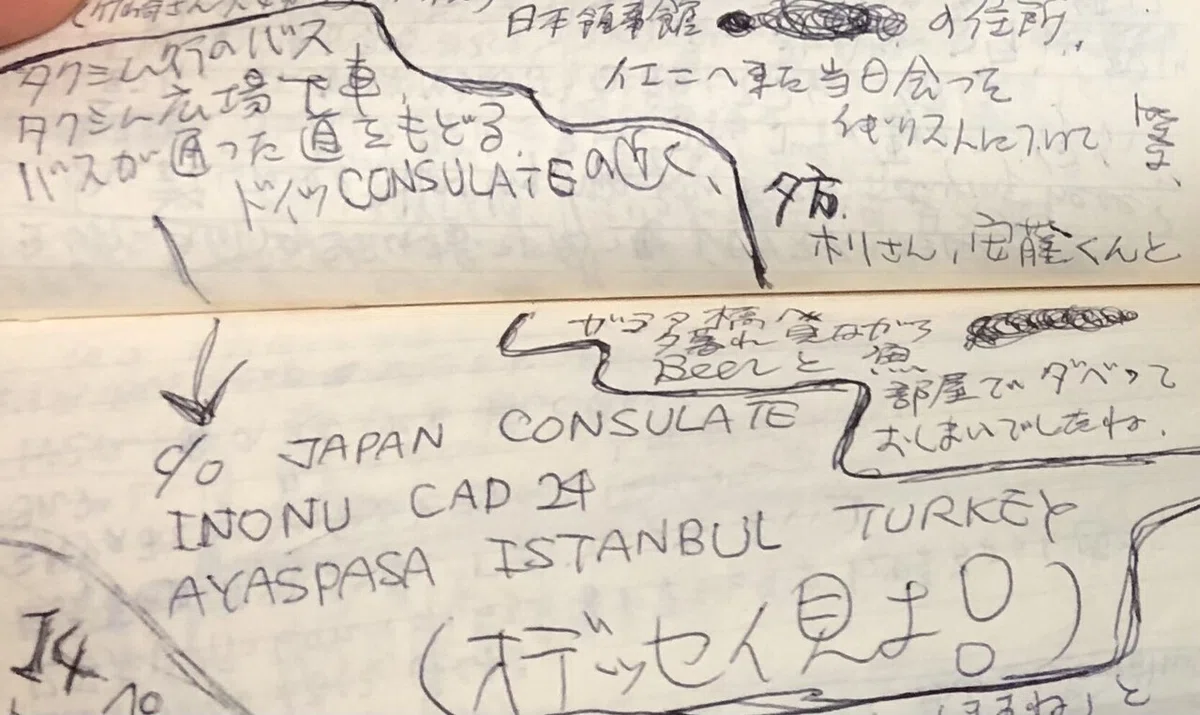 日本領事館 の住所
タクシム行のバス
タクシム広場下車
バスが通った道をもどる
ドイツCONSULATEの近く、
イエニへ来た当日会って
イギリス人について
夕方
ホリさん、安藤くんと
ガラタ橋
夕暮れ 見ながら
Beerと 魚
部屋でダベって
おしまいでしたね。
c/o JAPAN CONSULATE
INONU CAD 24
AYASPASA ISTANBUL TURKEY
(オデッセイ見よ!)
14